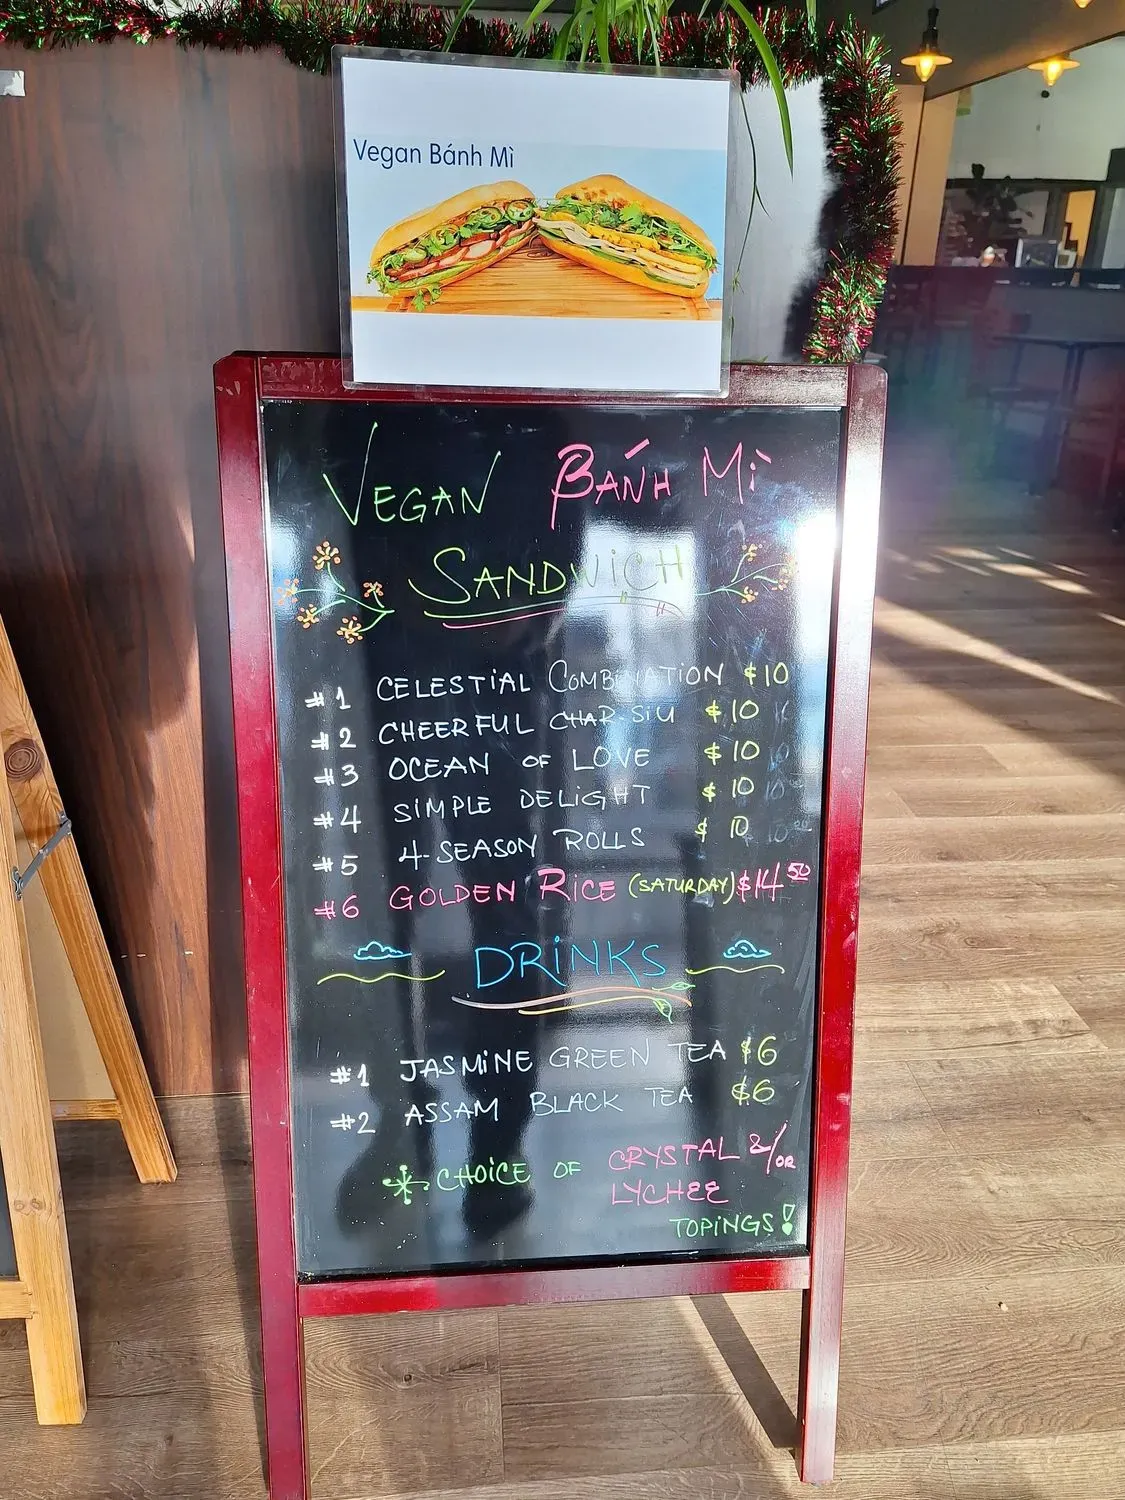 Vegan Bánh Mì
VEGAN BÁNH MÌ
SANDWICH
#1 CELESTIAL COMBINATION $10
#2 CHEERFUL CHAR-SIU $10
#3 OCEAN OF LOVE $10
#4 SIMPLE DELIGHT $10
#5 4-SEASON ROLLS $10
#6 GOLDEN RICE (SATURDAY) $14 50
DRINKS
#1 JASMINE GREEN TEA $6
#2 ASSAM BLACK TEA $6
* CHOICE OF CRYSTAL &/OR
LYCHEE
TOPINGS!